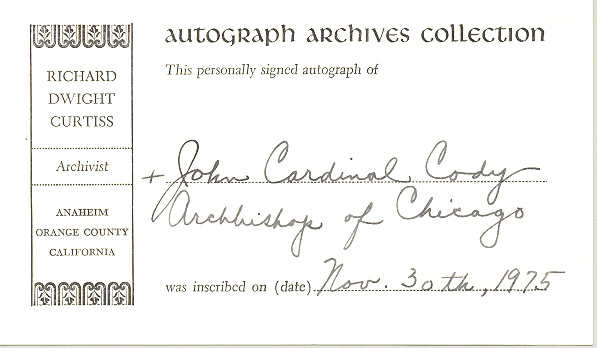 AUTOGRAPH ARCHIVES COLLECTION
This personally signed autograph of
RICHARD
DWIGHT
CURTISS
Archivist
ANAHEIM
ORANGE COUNTY
CALIFORNIA
+ John Cardinal Cody
Archbishop of Chicago
was inscribed on (date) Nov. 30th, 1975